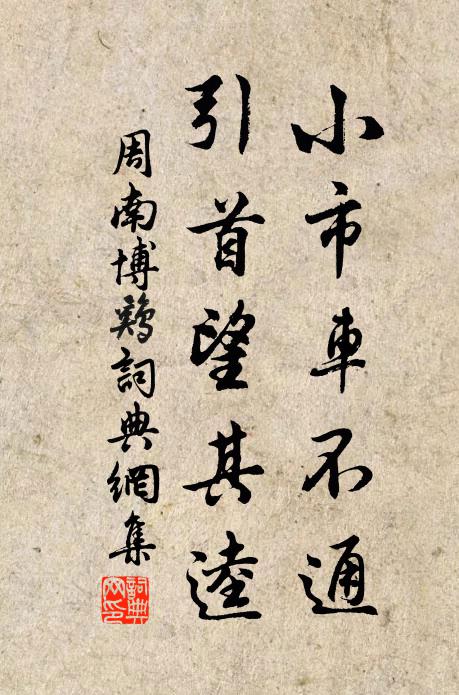 小市車不通
引首望其逵
周南博鷄詞典網集
詞典網印